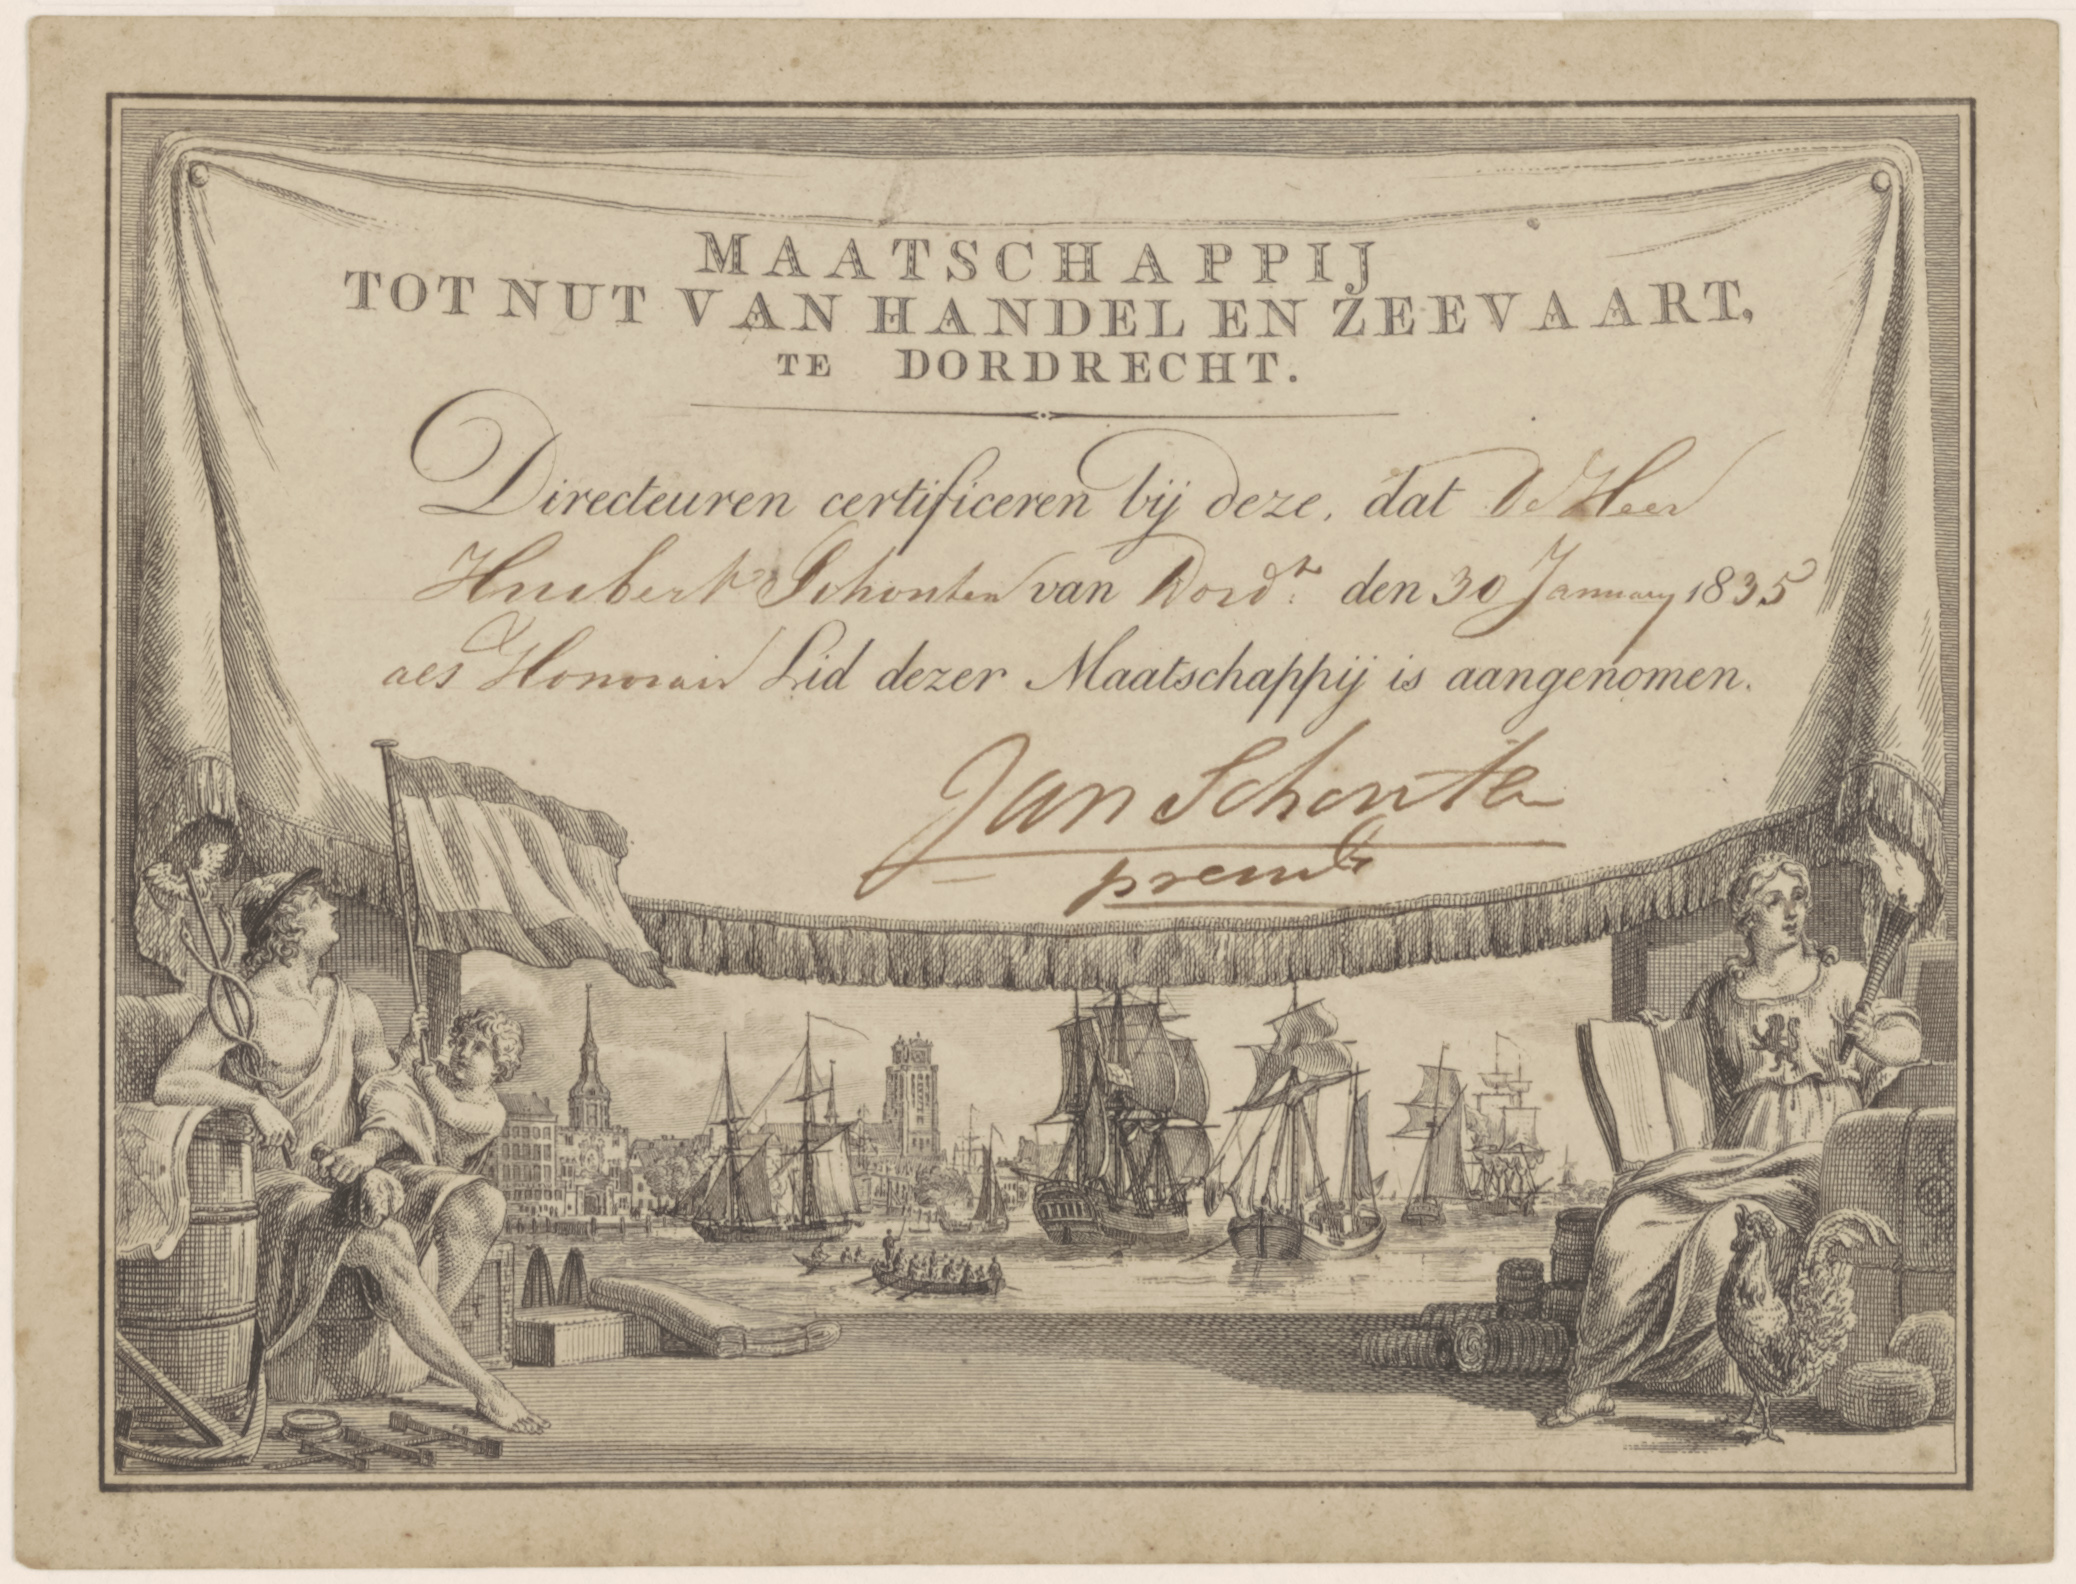 MAATSCHAPPIJ
TOT NUT VAN HANDEL EN ZEEVAART,
TE DORDRECHT.
Directeuren certificeren bij deze, dat De Heer
Huibert Schouten van Dord.t den 30 January 1835
als Honorair Lid dezer Maatschappij is aangenomen.
Jan Schouten